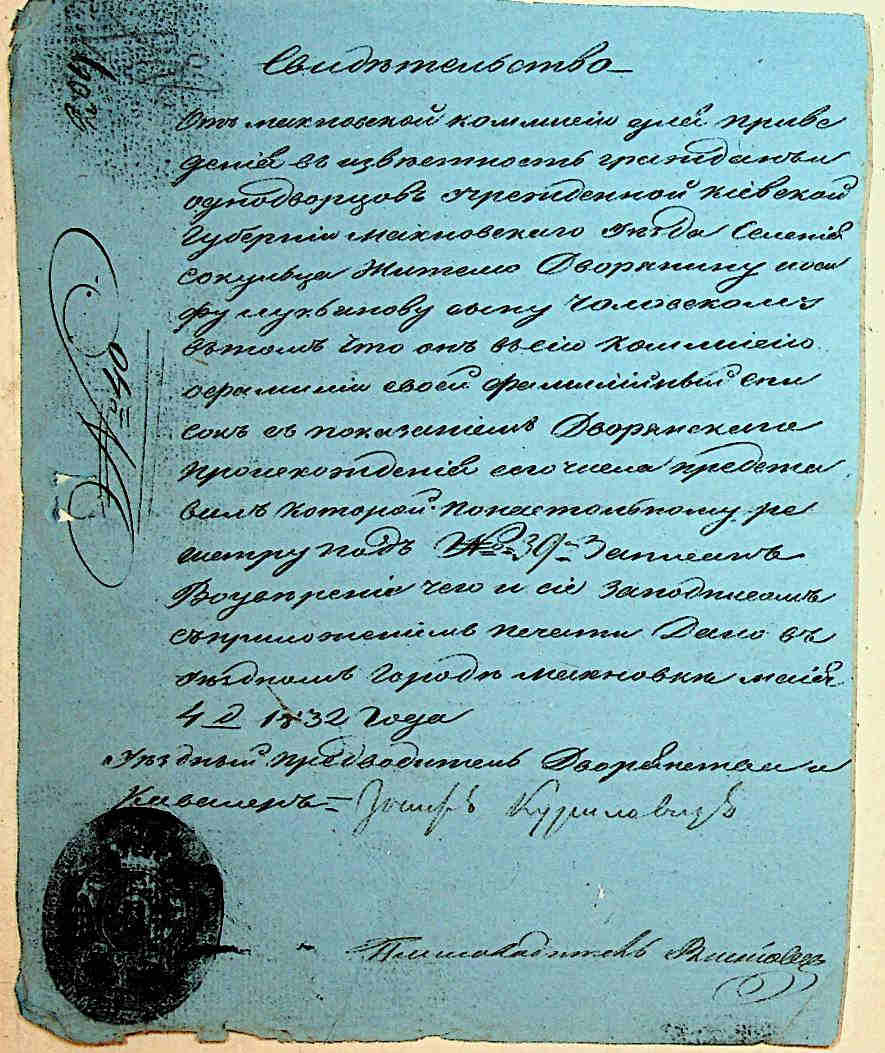 Свидѣтельство
Отъ махновской коммисіи для приве
денія въ извѣстность гражданъ и
однодворцовъ учрежденной Кіевской
Губерніи Махновскаго Уѣзда Селенія
Сокульца Жителю Дворянину иоси
фу лукьянову сыну Чоловскому
вътомъ что онъ въсію Коммисію
офамиліи своей фамилійный спи
сокъ съ показаніемъ Дворянскаго
происхожденія сегочисла предста
вилъ которой понастольному ре
эстру подъ № 39 = Записанъ
Воувѣреніе чего и сіе заподписомъ
съприложеніемъ печати Дано въ
уѣздномъ Городѣ махновкѣ маія
4 д 1832 Года
Уѣздный предводитель Дворянства и
Кавалеръ = Іосифъ Куриловичъ
Письмоводитель
№ 40